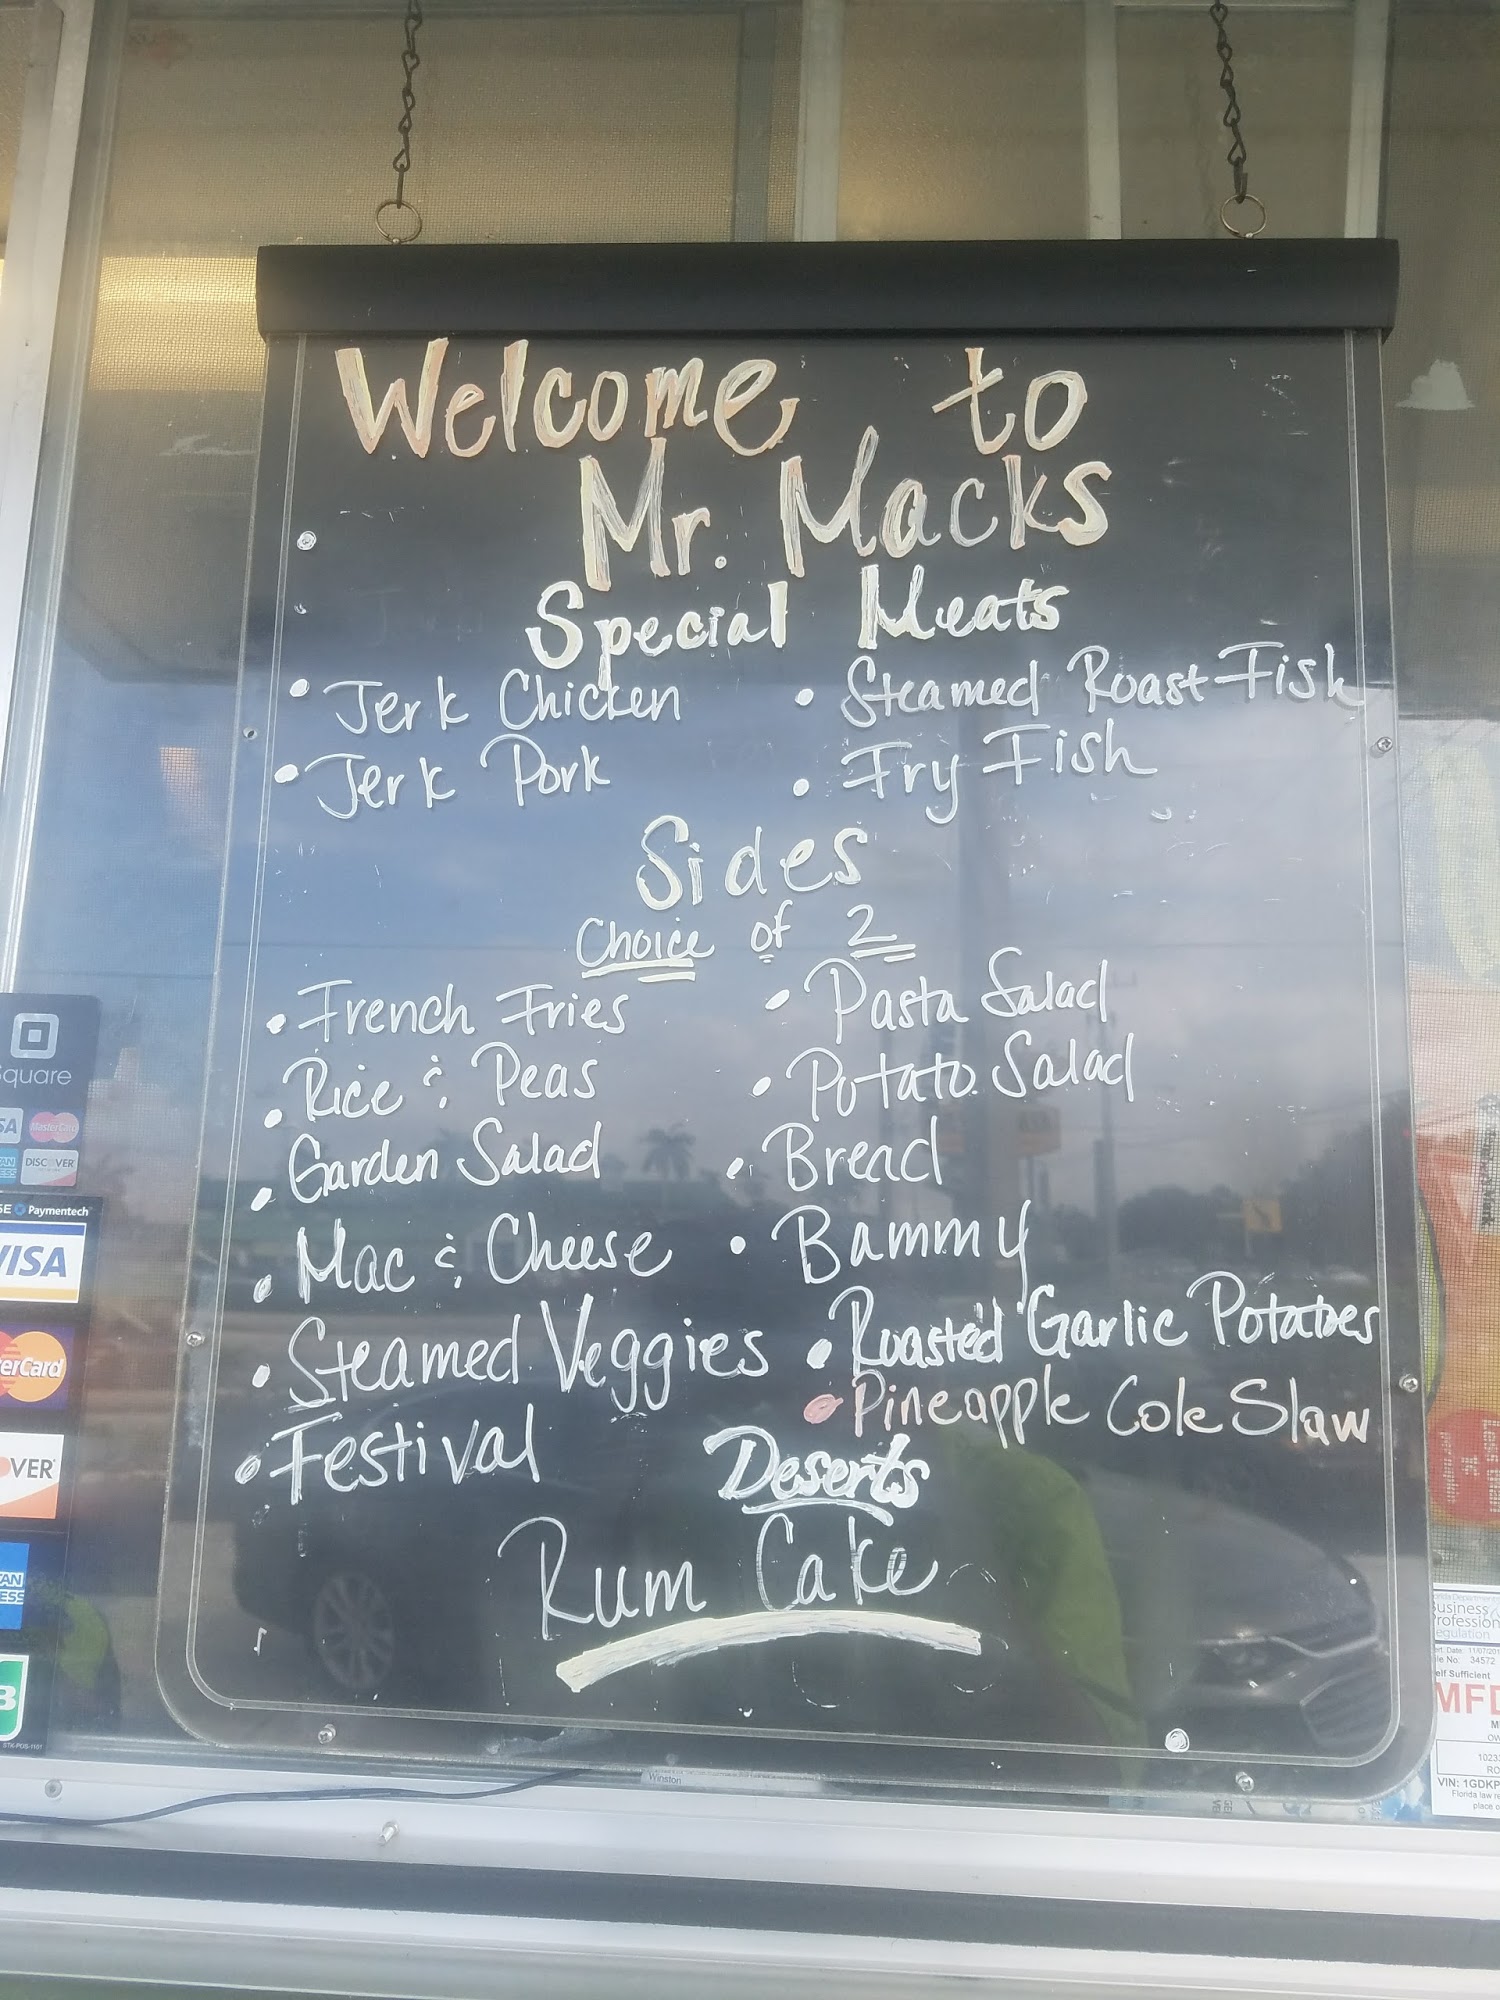 Welcome to
Mr. Macks
Special Meats
• Jerk Chicken
• Jerk Pork
• Steamed Roast Fish
• Fry Fish
Sides
Choice of 2
• French Fries
• Rice & Peas
• Garden Salad
• Mac & Cheese
• Steamed Veggies
• Festival
• Pasta Salad
• Potato Salad
• Bread
• Bammy
• Roasted Garlic Potatoes
• Pineapple Cole Slaw
Deserts
Rum Cake
Winston
Square
MasterCard
DISCOVER
Paymentech
VISA
erCard
OVER
STK-POS-1101
Business
Profession
egulation
11/07/201
34572
elf Sufficient
MFD
1023
RO
VIN: 1GDKP
Florida law re
place o